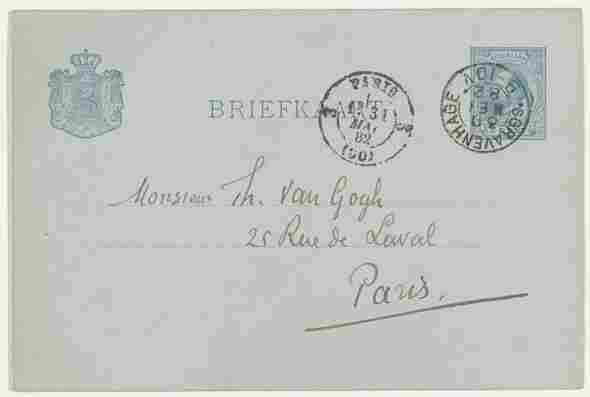 BRIEFKAART
PARIS
31
MAI
82
(60)
'S GRAVENHAGE
30
MEI
82
Monsieur Th. van Gogh
25 Rue de Laval
Paris.